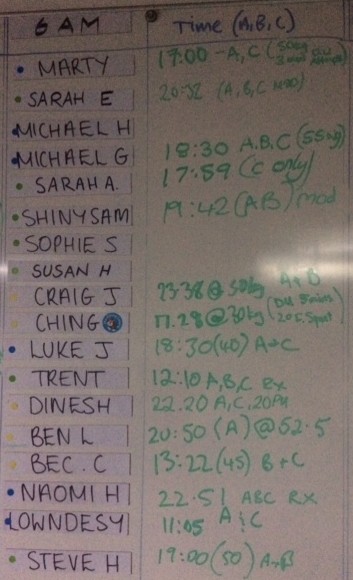 6 AM Time (A,B,C)
MARTY 17:00 - A, C (50kg
SARAH E 20:52 (A, B, C
MICHAEL H
MICHAEL G 18:30 A.B.C (55kg)
SARAH A. 17:59 (C only)
SHINYSAM 19:42 (AB) mod
SOPHIE S
SUSAN H
CRAIG J 23:38 @ 50kg A+B
CHING 17.28 @ 30kg (DU 5mins
LUKE J 18:30 (40) A+C
TRENT 12:10 A,B,C Rx
DINESH 22.20 A, C, 20PM
BEN L 20:50 (A) @ 52.5
BEC. C 13:22 (45) B+C
NAOMI H 22.51 ABC RX
LOWNDESY 11:05 A & C
STEVE H 19:00 (50) A+B